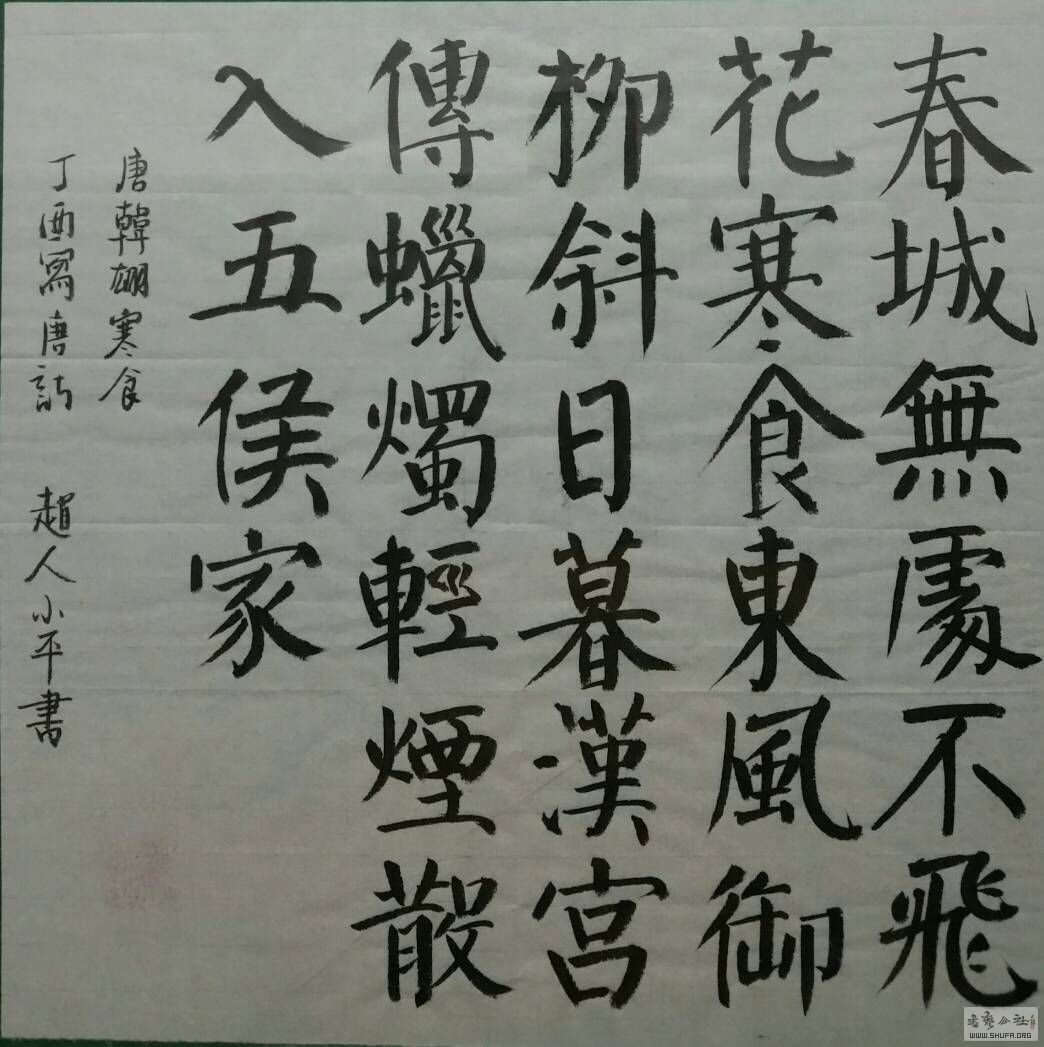 春城無處不飛
花寒食東風御
柳斜日暮漢宮
傳蠟燭輕煙散
入五侯家
唐韓翃寒食
丁酉寫唐詩 趙人小平書
WWW.SHUFA.ORG